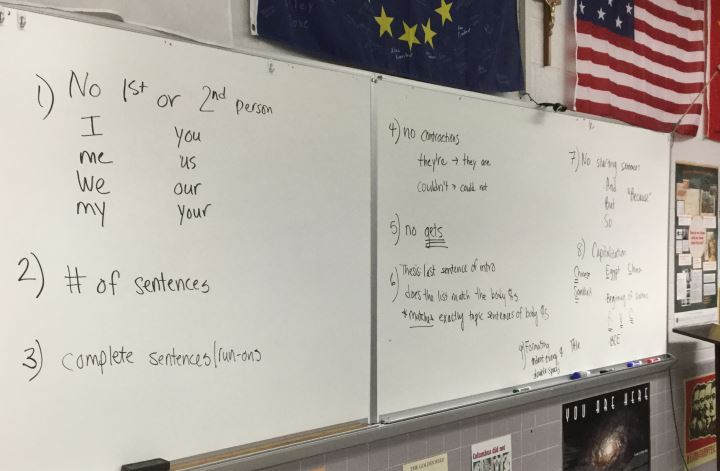 1) No 1st or 2nd person
I you
me us
We our
my your
2) # of sentences
3) complete sentences/run-ons
4) no contractions
they're → they are
couldn't → could not
5) no gets
6) Thesis: last sentence of intro
does the list match the body ¶s
*matches exactly topic sentences of body ¶s
7) No starting sentences
And "Because"
But
So
8) Capitalization
Chinese Egypt
Beginning of
BCE
9) Formatting Title
double space
YOU ARE HERE
Columbus did not
THE GOLDEN RULE